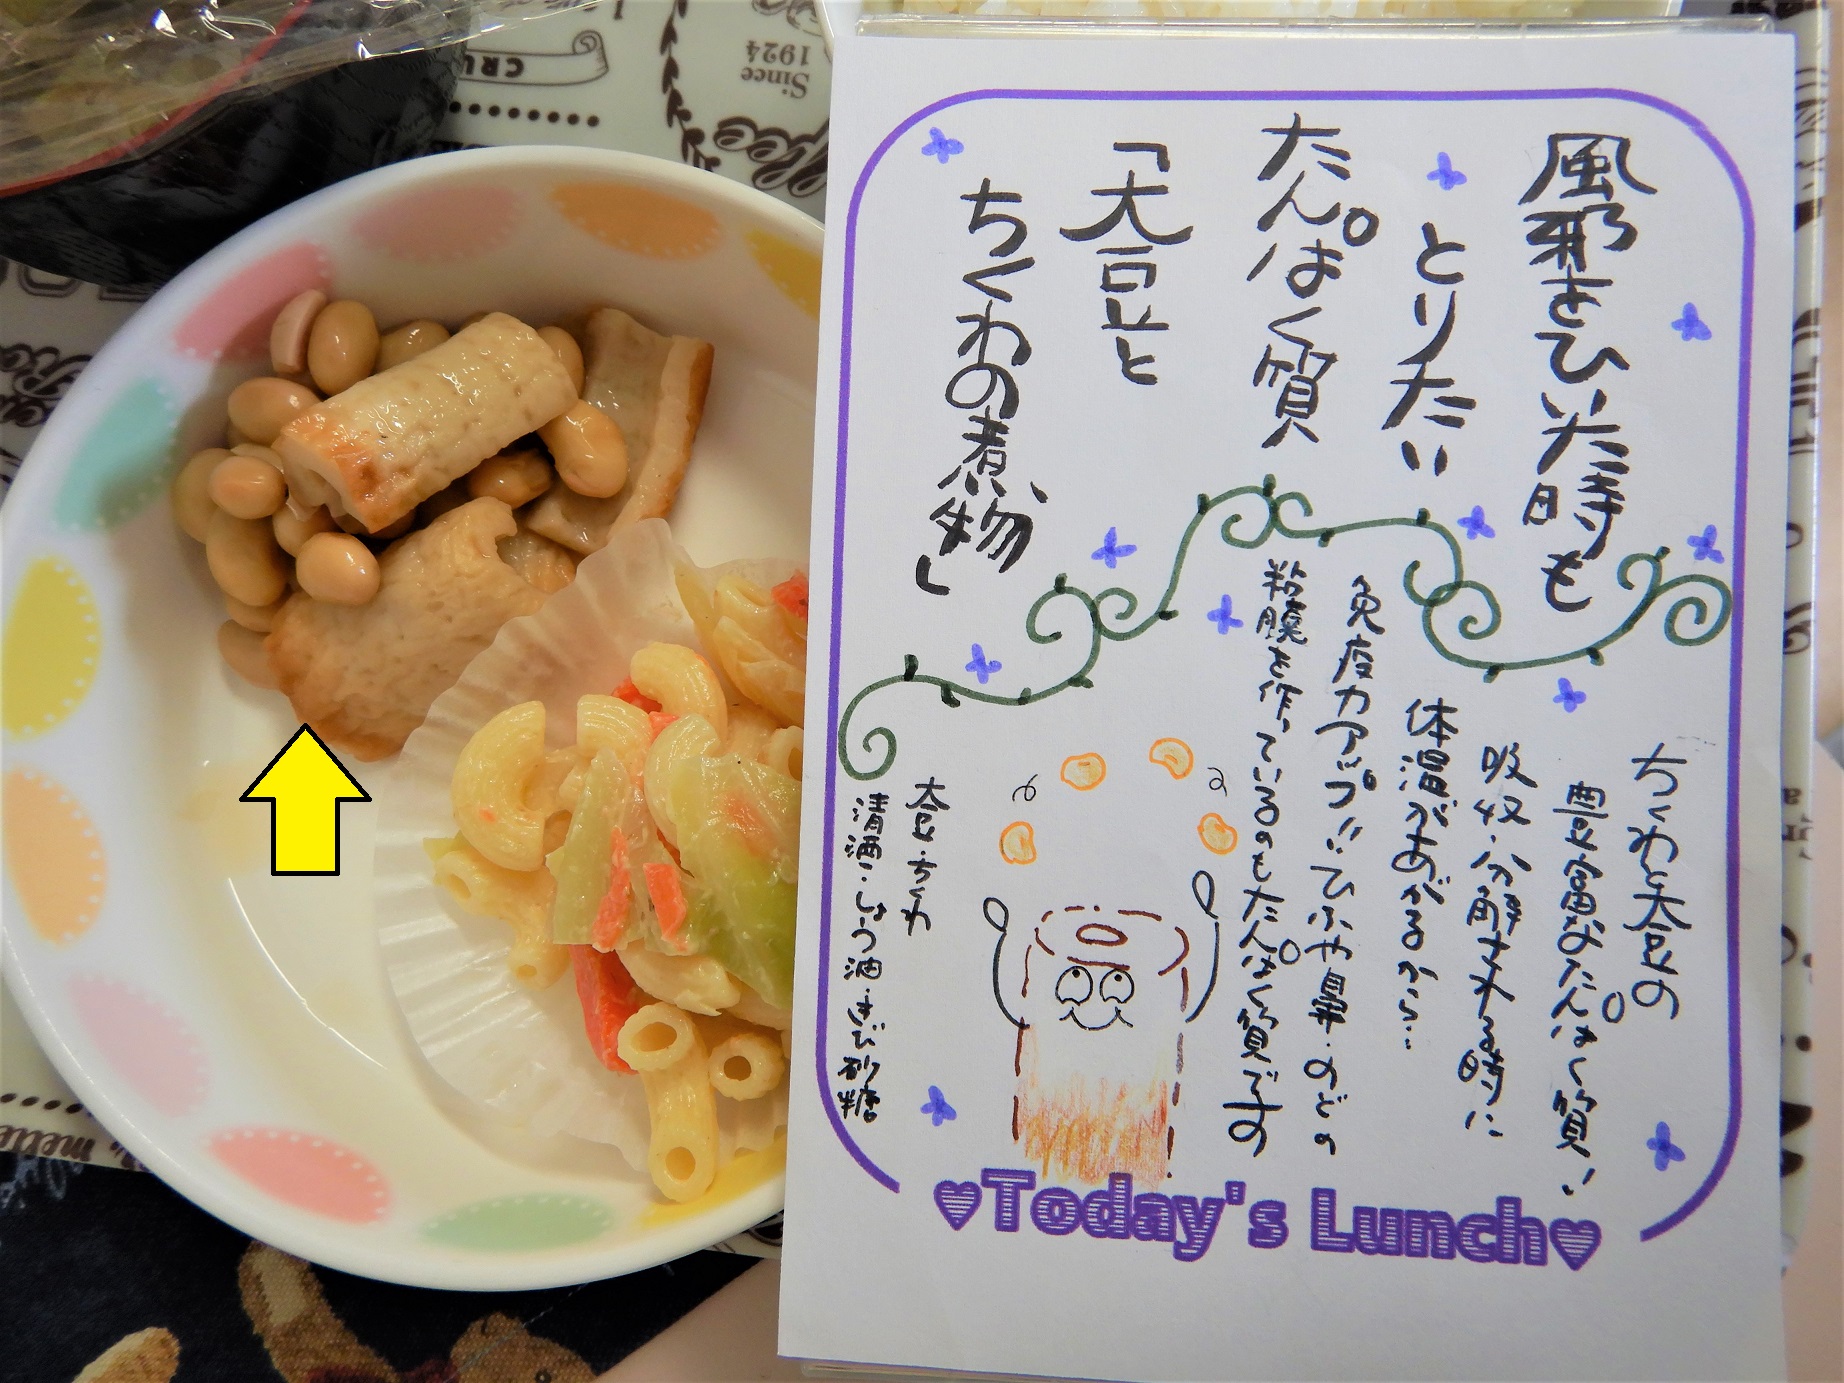 風邪をひいた時も
とりたい
たんぱく質
「大豆と
ちくわの煮物」
ちくわと大豆の
豊富なたんぱく質い
吸収・分解される時に
体温があがるから…
免疫力アップ!!ひふや鼻・のどの
粘膜を作っているのもたんぱく質です
大豆・ちくわ
清酒・しょう油・きび砂糖
♥Today's Lunch♥
Since
1924
Coffee